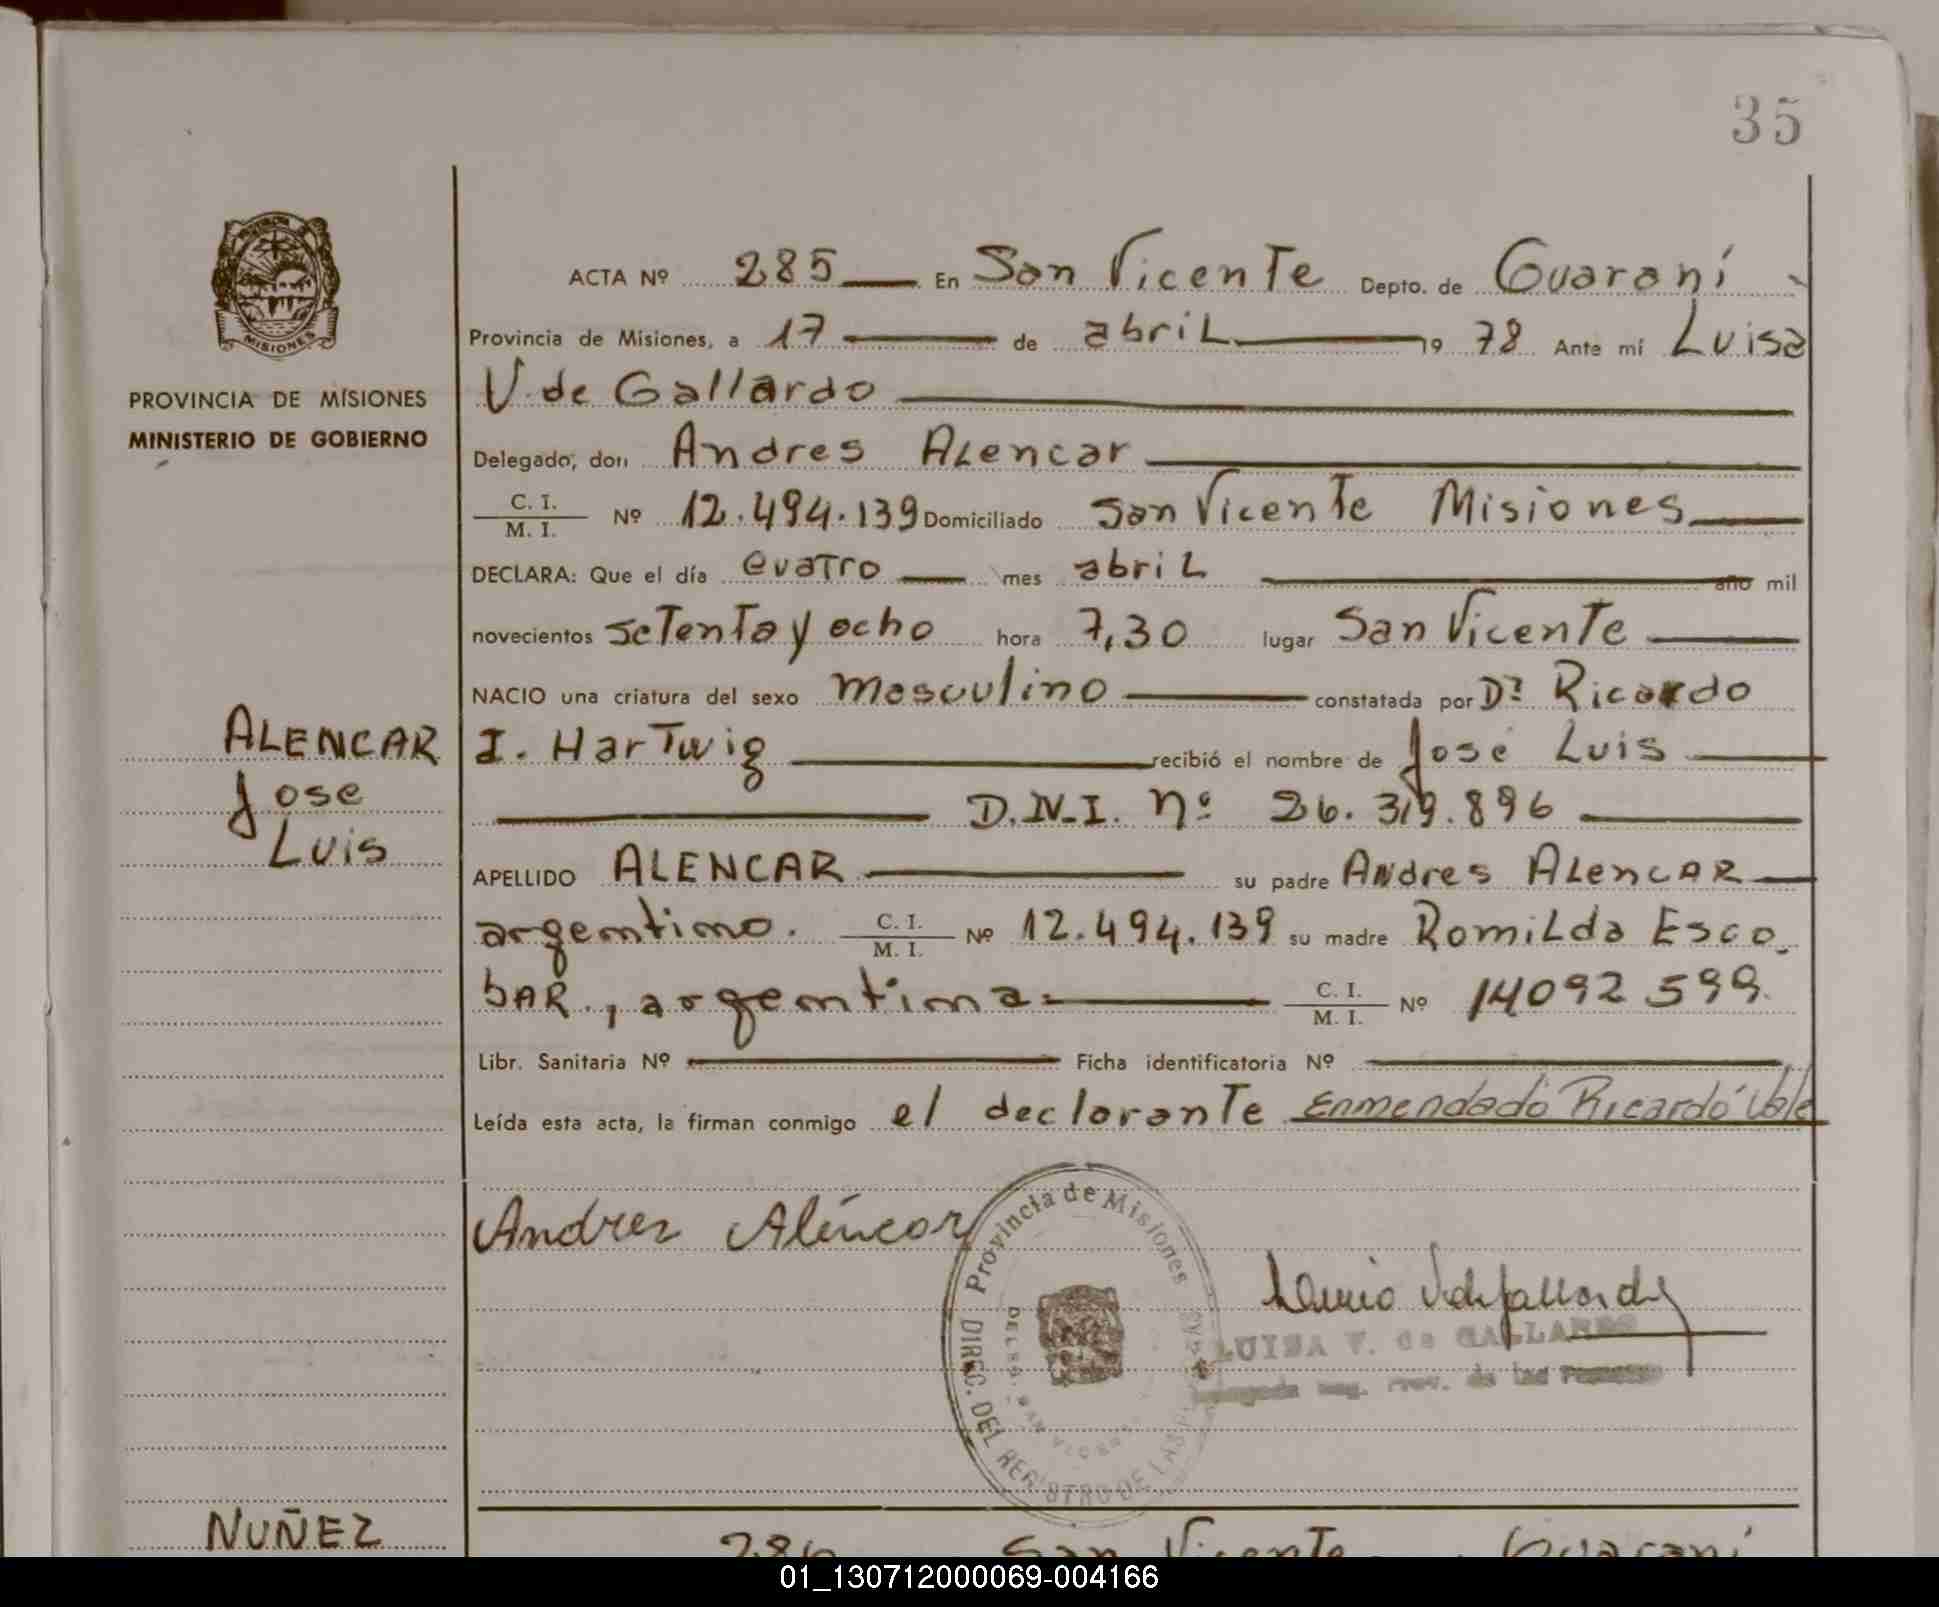 35
ACTA Nº 285 En San Vicente Depto. de Guaraní
Provincia de Misiones, a 17 de abril 19 78 Ante mí Luisa
V. de Gallardo
PROVINCIA DE MISIONES
MINISTERIO DE GOBIERNO
MISIONES
Delegado, don Andres Alencar
C. I. / M. I. Nº 12.494.139 Domiciliado San Vicente Misiones
DECLARA: Que el día cuatro mes abril año mil
novecientos setenta y ocho hora 7,30 lugar San Vicente
NACIO una criatura del sexo masculino constatada por Dr Ricardo
ALENCAR
Jose
Luis
I. Hartwig recibió el nombre de José Luis
D.N.I. nº 26.319.896
APELLIDO ALENCAR su padre Andres Alencar
argentino. C. I. / M. I. Nº 12.494.139 su madre Romilda Esco
bar., argentina= C. I. / M. I. Nº 14092 599.
Libr. Sanitaria Nº Ficha identificatoria Nº
Leída esta acta, la firman conmigo el declarante Enmendado Ricardo Vale
Andres Alencar
Provincia de Misiones
DIREC. DEL REGISTRO DE LAS P.
LUISA V. de GALLARDO
NUÑEZ
286 San Vicente Guaraní
01_130712000069-004166